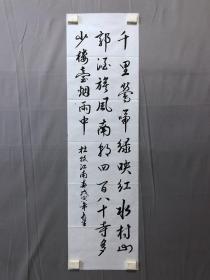 千里莺啼绿映红水村山
郭酒旗风南朝四百八十寺多
少楼台烟雨中
杜牧江南春